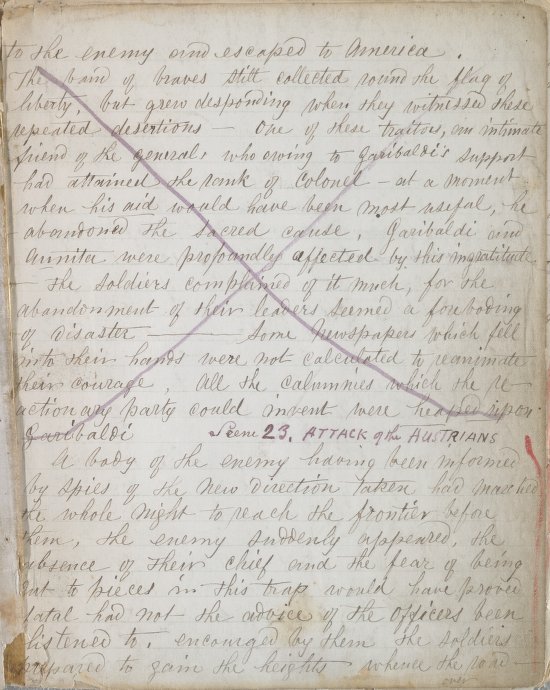 to the enemy and escaped to America.
The band of braves still collected round the flag of
liberty, but grew desponding when they witnessed these
repeated desertions — One of these traitors, an intimate
friend of the generals who owing to Garibaldi's support
had attained the rank of Colonel — at a moment
when his aid would have been most useful, he
abandoned the sacred cause, Garibaldi and
Annita were profoundly affected by this ingratitude
— The soldiers complained of it much, for the
abandonment of their leaders seemed a foreboding
of disaster — Some Newspapers which fell
into their hands were not calculated to reanimate
their courage, All the Calumnies which the re
actionary party could invent were heaped upon
Garibaldi Scene 23. ATTACK of the AUSTRIANS
A body of the enemy having been informed
by spies of the New Direction taken had marched
the whole Night to reach the frontier before
them, the enemy suddenly appeared, the
absence of their chief and the fear of being
cut to pieces in this trap would have proved
fatal had not the advice of the Officers been
listened to. encouraged by them the soldiers
prepared to gain the heights whence the road —
over